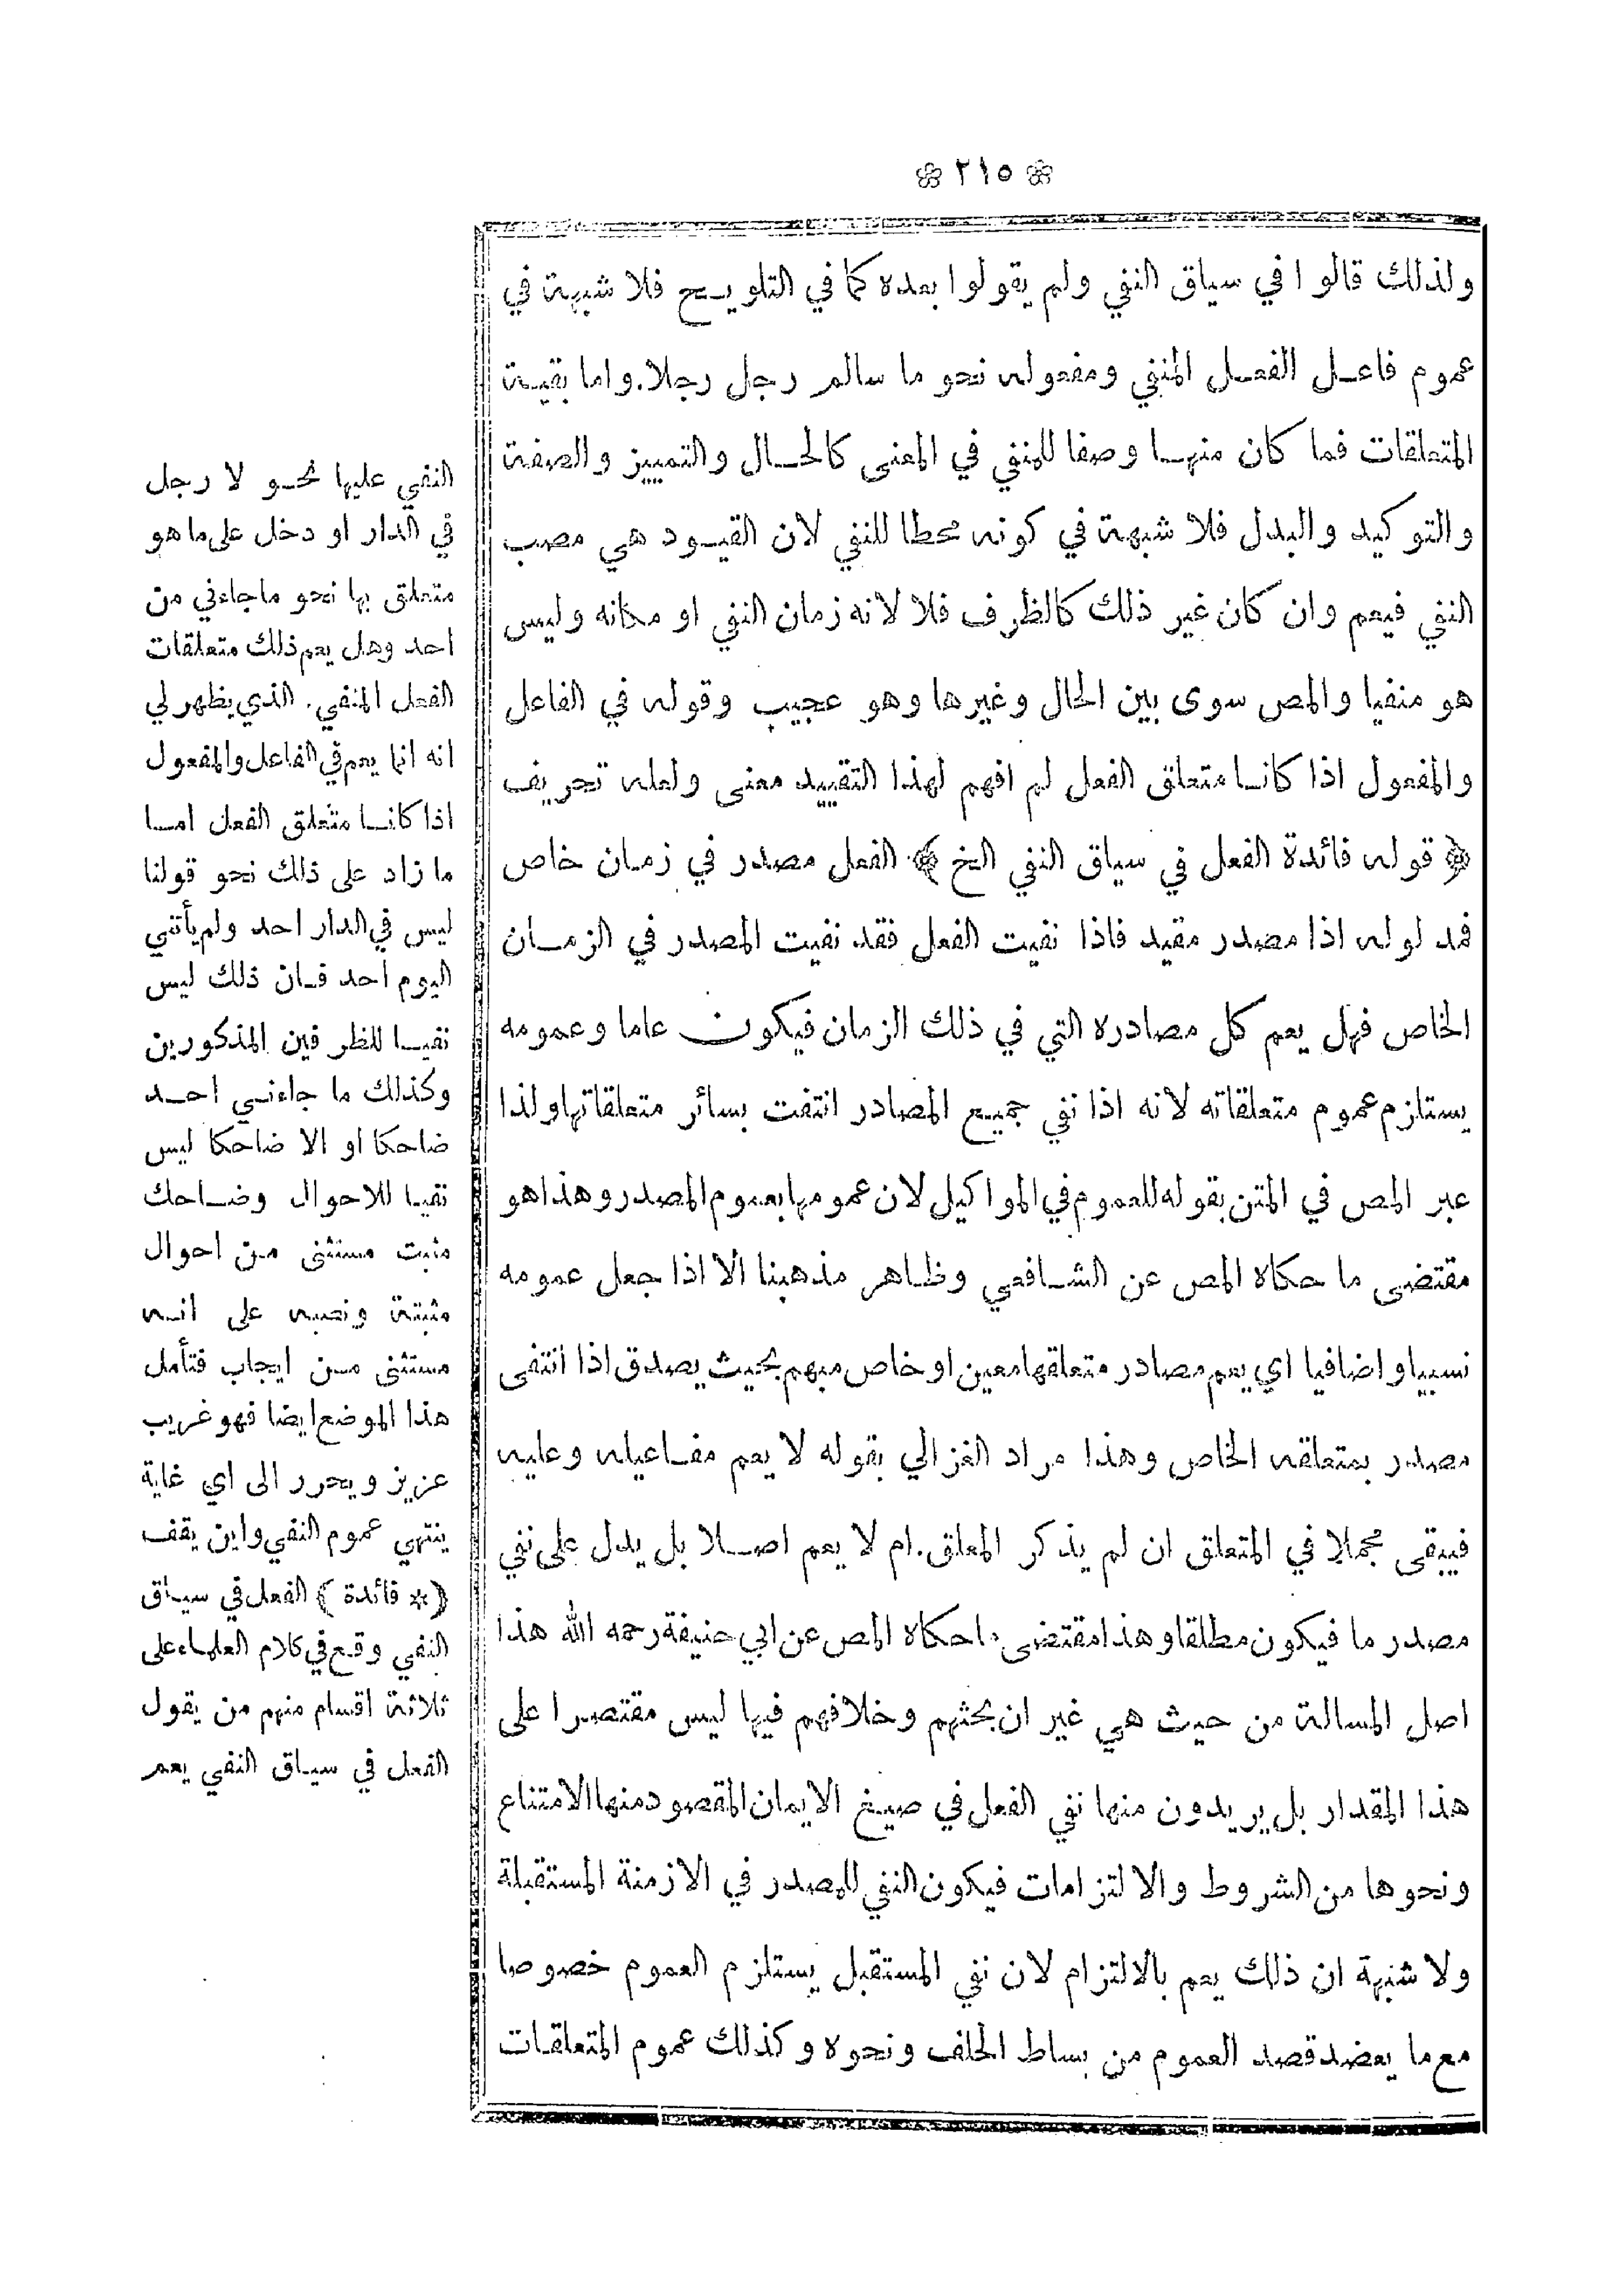 ❁ ٢١٥ ❁
ولذلك قالوا في سياق النفي ولم يقولوا بعده كما في التلويح فلا شبهة في
عموم فاعل الفعل المنفي ومفعوله نحو ما سالم رجل رجلا. واما بقية
المتعلقات فما كان منها وصفا للمنفي في المعنى كالحال والتمييز والصفة
والتوكيد والبدل فلا شبهة في كونه محطا للنفي لان القيود هي مصب
النفي فيعم وان كان غير ذلك كالظرف فلا لانه زمان النفي او مكانه وليس
هو منفيا والمص سوى بين الحال وغيرها وهو عجيب وقوله في الفاعل
والمفعول اذا كانا متعلق الفعل لم افهم لهذا التقييد معنى ولعله تحريف
﴿ قوله فائدة الفعل في سياق النفي الخ ﴾ الفعل مصدر في زمان خاص
فمدلوله اذا مصدر مقيد فاذا نفيت الفعل فقد نفيت المصدر في الزمان
الخاص فهل يعم كل مصادره التي في ذلك الزمان فيكون عاما وعمومه
يستلزم عموم متعلقاته لانه اذا نفي جميع المصادر انتفت بسائر متعلقاتها ولذا
عبر المص في المتن بقوله للعموم في المواكيل لان عمومها بعموم المصدر وهذا هو
مقتضى ما حكاه المص عن الشافعي وظاهر مذهبنا الا اذا جعل عمومه
نسبيا واضافيا اي يعم مصادر متعلقها معين او خاص مبهم بحيث يصدق اذا انتفى
مصدر بمتعلقه الخاص وهذا مراد الغزالي بقوله لا يعم مفاعيله وعليه
فيبقى مجملا في المتعلق ان لم يذكر المعلق. ام لا يعم اصلا بل يدل على نفي
مصدر ما فيكون مطلقا وهذا مقتضى ما حكاه المص عن ابي حنيفة رحمه الله هذا
اصل المسالة من حيث هي غير ان بحثهم وخلافهم فيها ليس مقتصرا على
هذا المقدار بل يريدون منها نفي الفعل في صيغ الايمان المقصود منها الامتناع
ونحوها من الشروط والالتزامات فيكون النفي للمصدر في الازمنة المستقبلة
ولا شبهة ان ذلك يعم بالالتزام لان نفي المستقبل يستلزم العموم خصوصا
مع ما يعضد قصد العموم من بساط الحلف ونحوه وكذلك عموم المتعلقات
النفي عليها نحو لا رجل
في الدار او دخل على ما هو
متعلق بها نحو ما جاءني من
احد وهل يعم ذلك متعلقات
الفعل المنفي. الذي يظهر لي
انه انما يعم في الفاعل والمفعول
اذا كانا متعلق الفعل اما
ما زاد على ذلك نحو قولنا
ليس في الدار احد ولم يأتني
اليوم احد فان ذلك ليس
نفيا للظرفين المذكورين
وكذلك ما جاءني احد
ضاحكا او الا ضاحكا ليس
نفيا للاحوال وضاحك
مثبت مستثنى من احوال
مثبتة ونصبه على انه
مستثنى من ايجاب فتأمل
هذا الموضع ايضا فهو غريب
عزيز ويحرر الى اي غاية
ينتهي عموم النفي واين يقف
﴿* فائدة ﴾ الفعل في سياق
النفي وقع في كلام العلماء على
ثلاثة اقسام منهم من يقول
الفعل في سياق النفي يعم